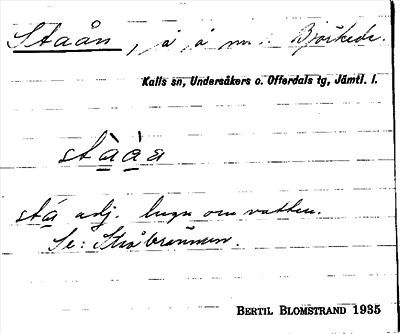 Staån, å, å nv. Björkede.
Kalls sn, Undersåkers o. Offerdals tg, Jämtl. l.
stààa
stá adj. lugn om vatten.
Se: Ståbrännan.
BERTIL BLOMSTRAND 1935